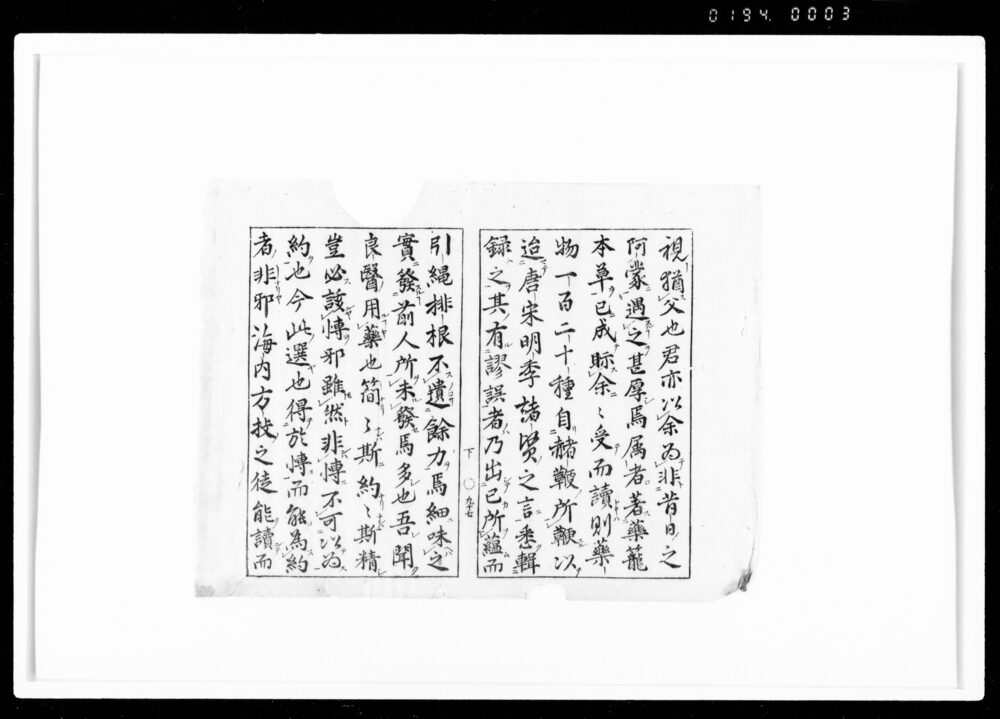 0194. 0003
視猶父也君亦以余為非昔日之
阿蒙遇之甚厚焉属者著藥籠
本草已成眎余〻受而讀則藥
物一百二十種自赭鞭所鞭以
迨唐宋明季諸賢之言悉輯
録之其有謬誤者乃出已所蘊而
下 〇九十七
引繩排根不遺餘力焉細味之
實發前人所未發焉多也吾聞
良醫用藥也簡〻斯約〻斯精
豈必該愽邪雖然非愽不可以為
約也今此選也得於愽而能為約
者非邪海内方技之徒能讀而